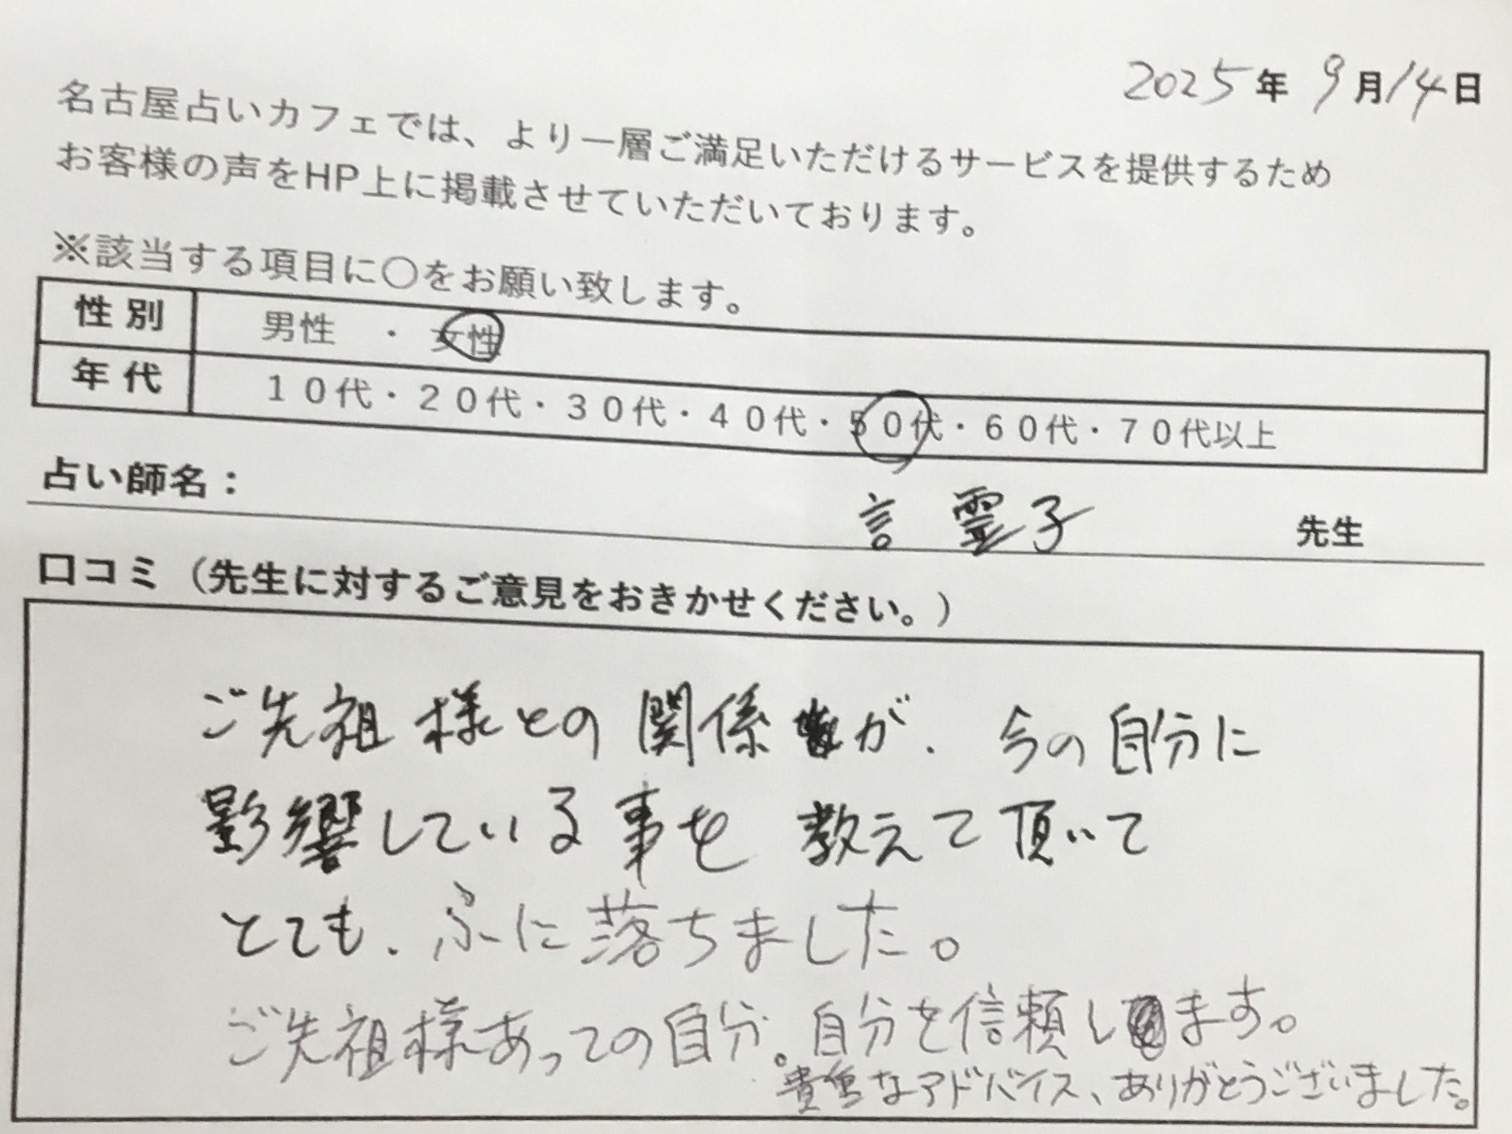 2025年 9月14日
名古屋占いカフェでは、より一層ご満足いただけるサービスを提供するため
お客様の声をHP上に掲載させていただいております。
※該当する項目に○をお願い致します。
性別 男性 ・ 女性
年代 10代・20代・30代・40代・50代・60代・70代以上
占い師名： 言霊子 先生
口コミ（先生に対するご意見をおきかせください。）
ご先祖様との関係が、今の自分に
影響している事を教えて頂いて
とても、ふに落ちました。
ご先祖様あっての自分。自分を信頼します。
貴重なアドバイス、ありがとうございました。